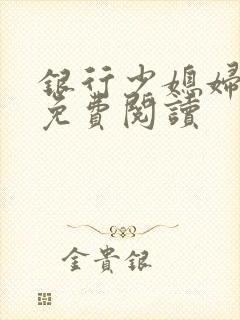 銀行少媳婦
免費閱讀
金貴銀